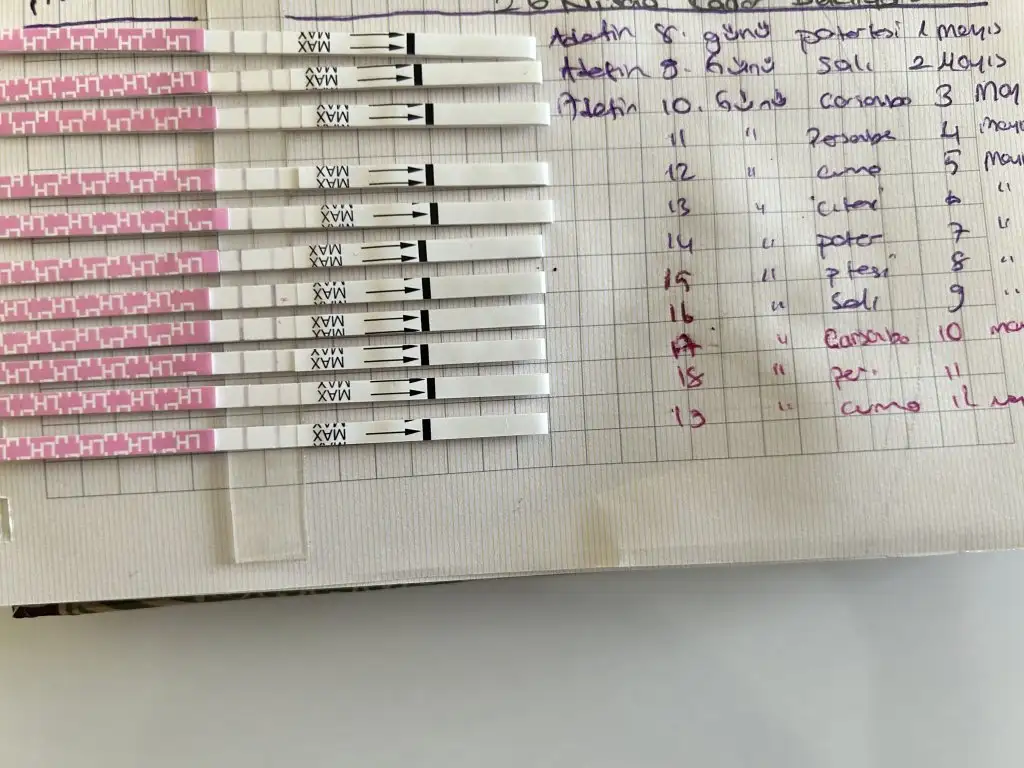 Adetin 8. günü patertesi 1 mayıs
Adetin 9. Günü Salı 2 Mayıs
Adetin 10. Günü Carsamba 3 May
11 " Persembe 4 mayıs
12 " cuma 5 Mayıs
13 " c.tesi 6 "
14 " pazar 7 "
15 " p.tesi 8 "
16 " Salı 9 "
17 " Carsamba 10
18 " per. 11
19 " cuma 12
LH LH LH LH LH
MAX
MAX
MAX
MAX
MAX
MAX
MAX
MAX
MAX
MAX
MAX